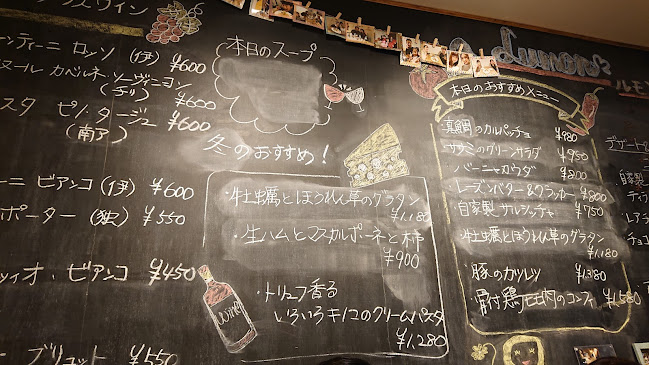 スワイン
ンティーニ ロッソ (伊) ¥600
ヌール カベルネ・ソーヴィニヨン
(チリ) ¥600
スタ ピノ・タージュ ¥600
(南ア)
ーニ ビアンコ (伊) ¥600
ポーター (独) ¥550
ツィオ・ビアンコ ¥450
ブリュット ¥550
本日のスープ
冬のおすすめ!
・牡蠣とほうれん草のグラタン
¥1,180
・生ハムとマスカルポーネと柿
¥900
・トリュフ香る
いろいろキノコのクリームパスタ
¥1,280
wine
Lumon
ルモ
本日のおすすめメニュー
真鯛のカルパッチョ ¥980
のグリーンサラダ ¥950
バーニャカウダ ¥800
レーズンバター&クラッカー ¥800
自家製 サルシッチャ ¥750
牡蠣とほうれん草のグラタン
¥1,180
豚のカツレツ ¥1,380
骨付鶏モモ肉のコンフィ ¥1,580
デザート&
自家製
ティラ
レアチ
チョコ